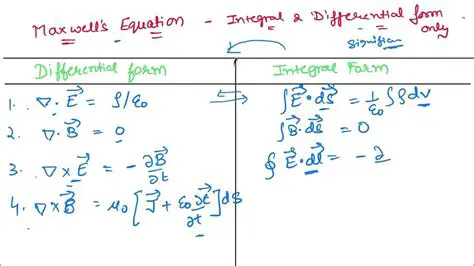 Maxwell's Equation - Integral & Differential form only.
Significan
Differential form
Integral Form
1. ∇·E⃗ = ρ/ε₀
∫E⃗·dS⃗ = 1/ε₀ ∫ρdv
2. ∇·B⃗ = 0
∫B⃗·dS⃗ = 0
3. ∇×E⃗ = -∂B⃗/∂t
∮E⃗·dl⃗ = -∂
4. ∇×B⃗ = μ₀[J⃗ + ε₀ ∂t⃗/∂t]ds